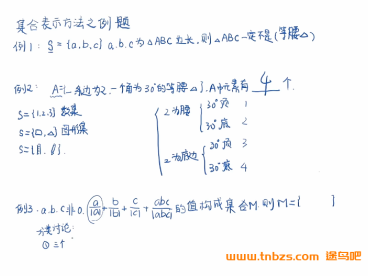 集合表示方法之例题
例1: S={a,b,c} a.b.c为△ABC边长,则△ABC一定不是(等腰△)
例2: A={一条边为2.一个角为30°的等腰△}.A中元素有 4 个.
S={1,2,3} 数集
S={□,△} 图形集
2为腰
30°顶 1
30°底 2
2为底边
30°顶 3
30°底 4
例3.a.b.c非0. a/|a|+b/|b|+c/|c|+abc/|abc| 的值构成集合M.则M={ }
分类讨论:
① 三个
www.tnbzs.com 途鸟吧